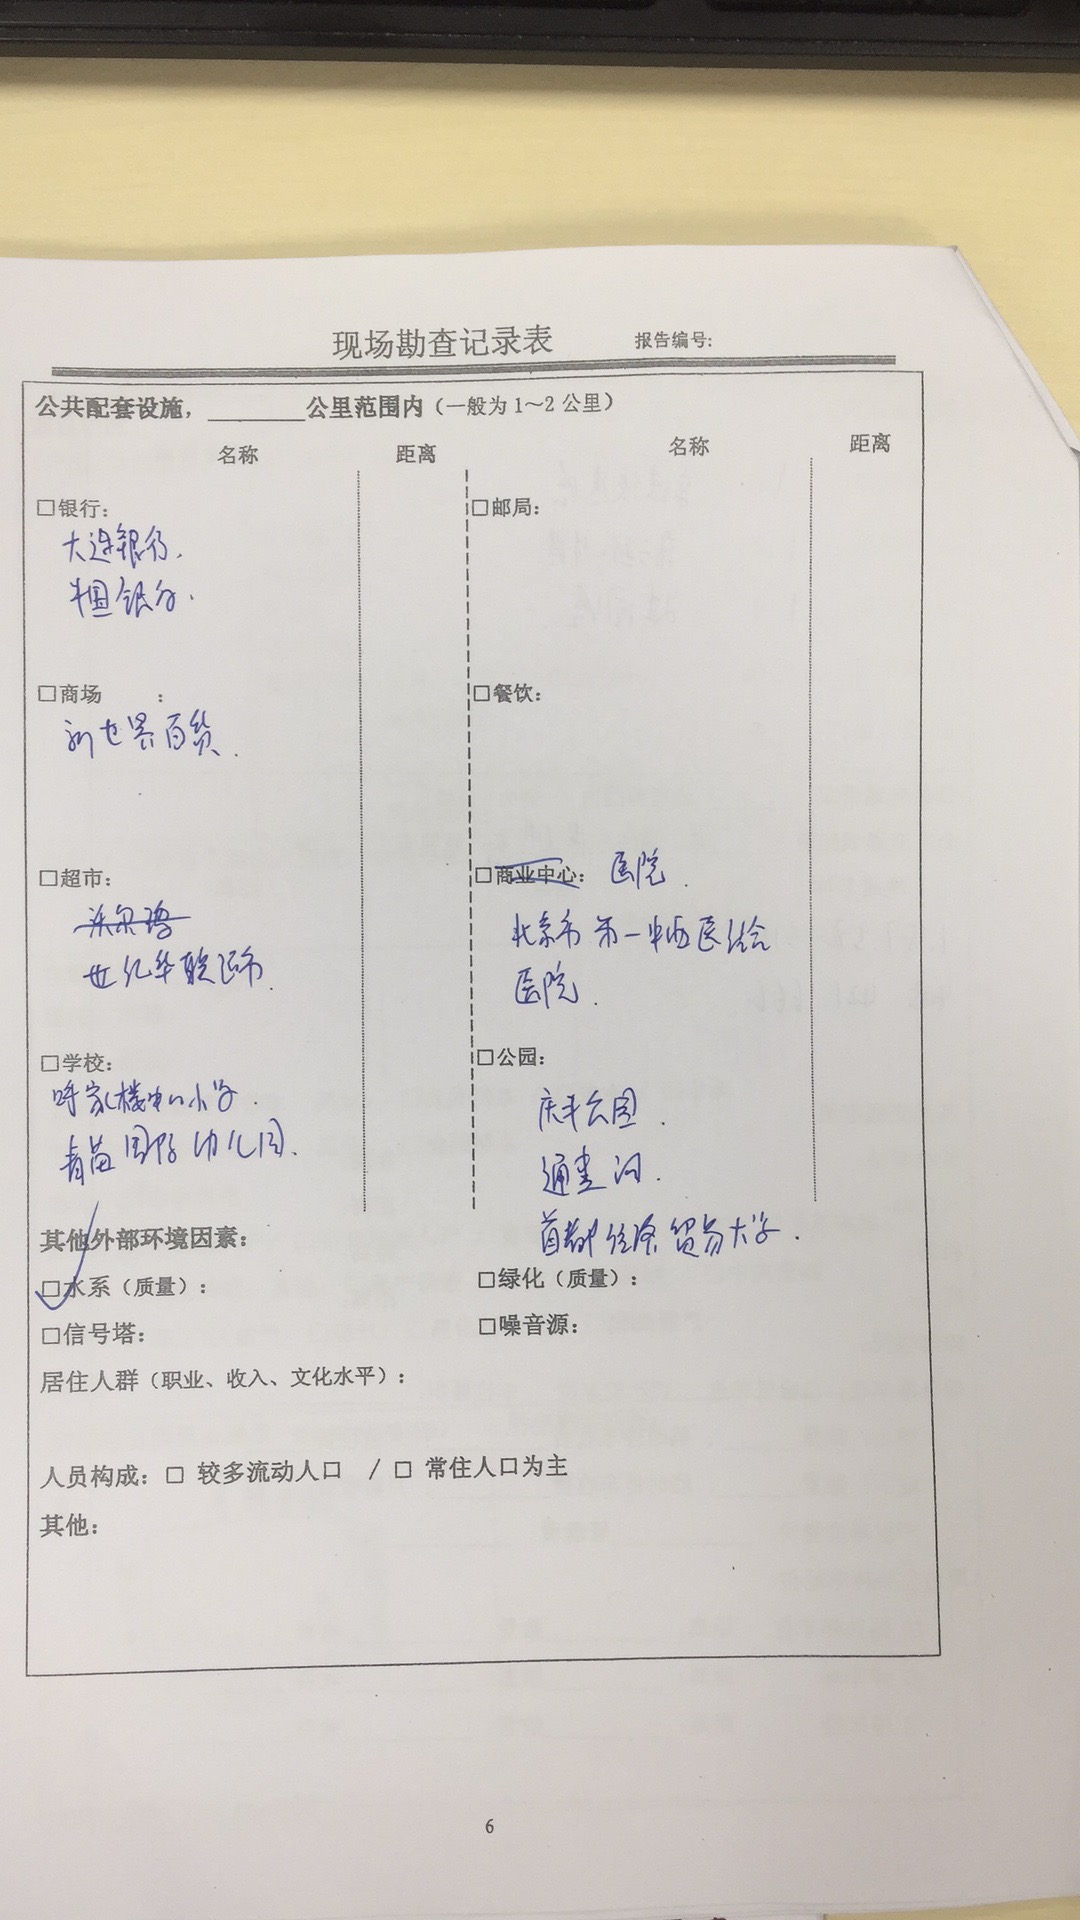 现场勘查记录表 报告编号:
公共配套设施，________公里范围内（一般为1～2公里）
名称 距离 名称 距离
□银行:
大连银行.
中国银行.
□邮局:
□商场 :
新世界百货.
□餐饮:
□超市:
沃尔玛
世纪华联超市.
□商业中心: 医院.
北京市第一中西医结合
医院.
□学校:
呼家楼中心小学.
青苗国际幼儿园.
□公园:
庆丰公园.
通惠河.
首都经济贸易大学.
其他外部环境因素:
□水系（质量）: □绿化（质量）:
□信号塔: □噪音源:
居住人群（职业、收入、文化水平）:
人员构成: □ 较多流动人口 / □ 常住人口为主
其他:
6